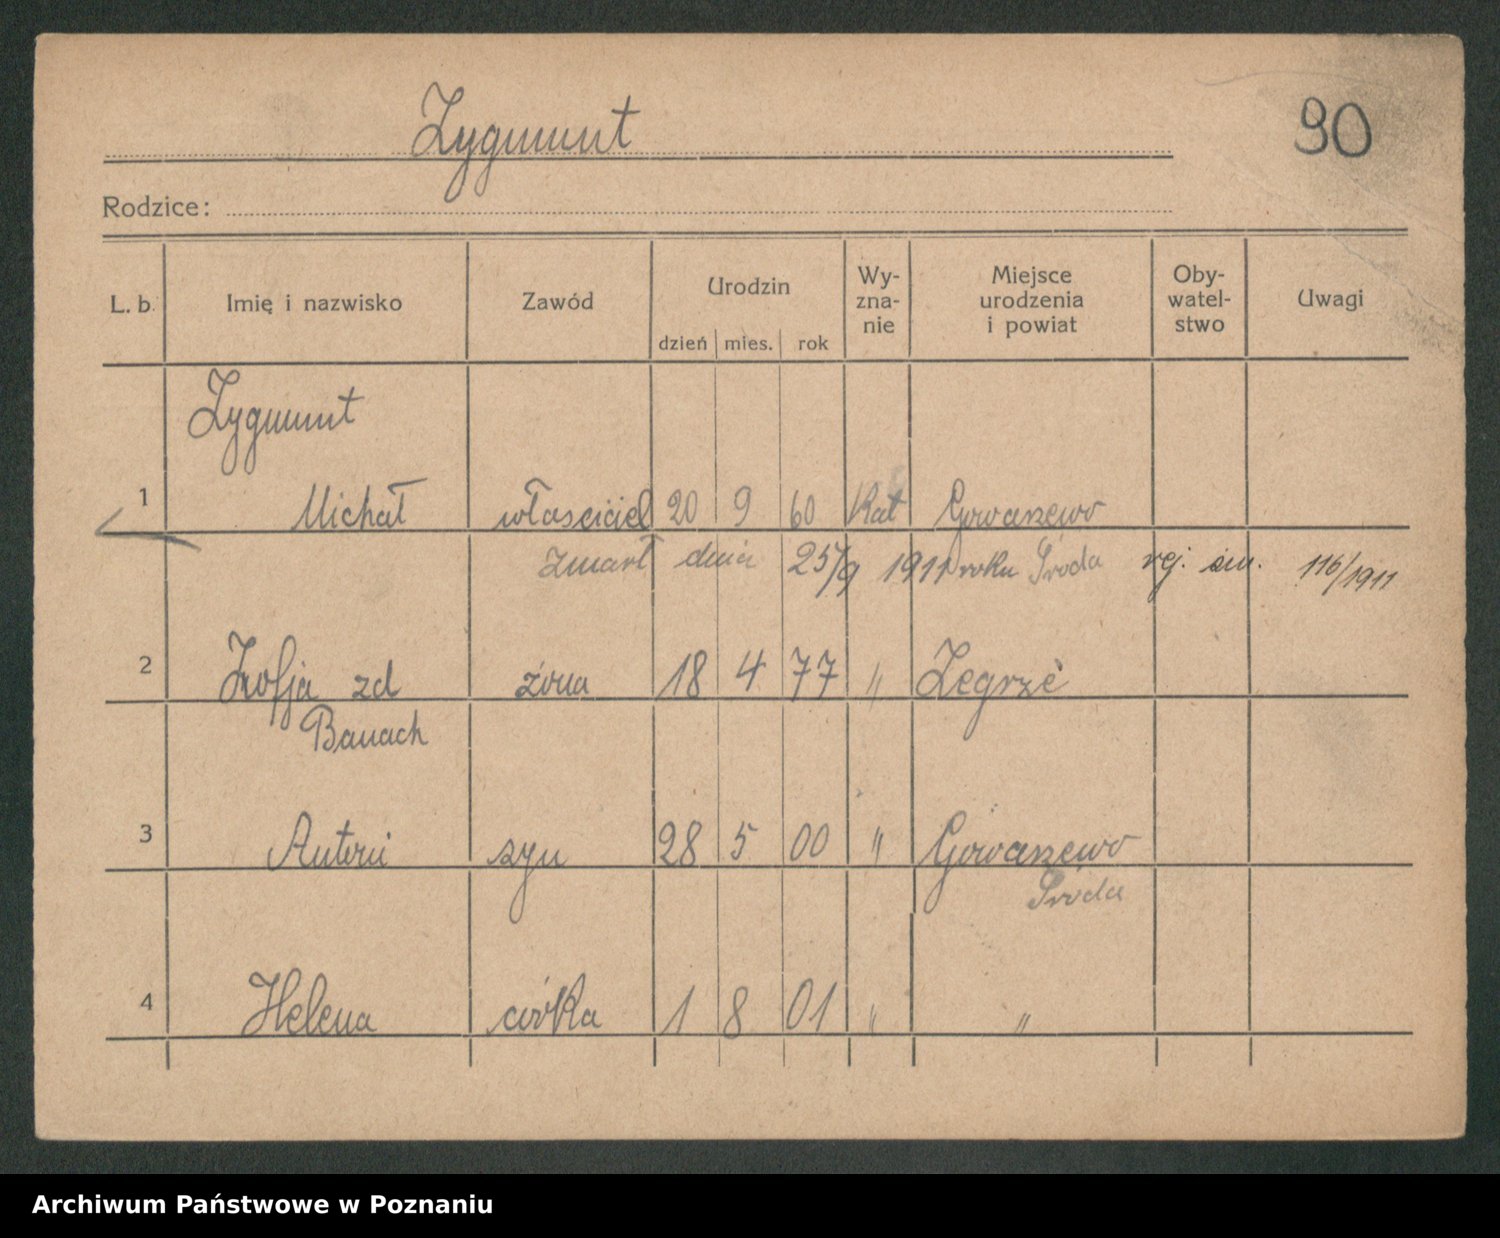 Zygmunt
90
Rodzice:
L. b. Imię i nazwisko Zawód Urodzin dzień mies. rok Wy-zna-nie Miejsce urodzenia i powiat Oby-watel-stwo Uwagi
Zygmunt
1 Michał właściciel 20 9 60 Kat Gowarzewo
zmarł dnia 25/9 1911 roku Środa rej. śm. 116/1911
2 Zofja zd żona 18 4 77 " Zegrże
Banach
3 Antoni syn 28 5 00 " Gowarzewo
Środa
4 Helena córka 1 8 01 " "
Archiwum Państwowe w Poznaniu